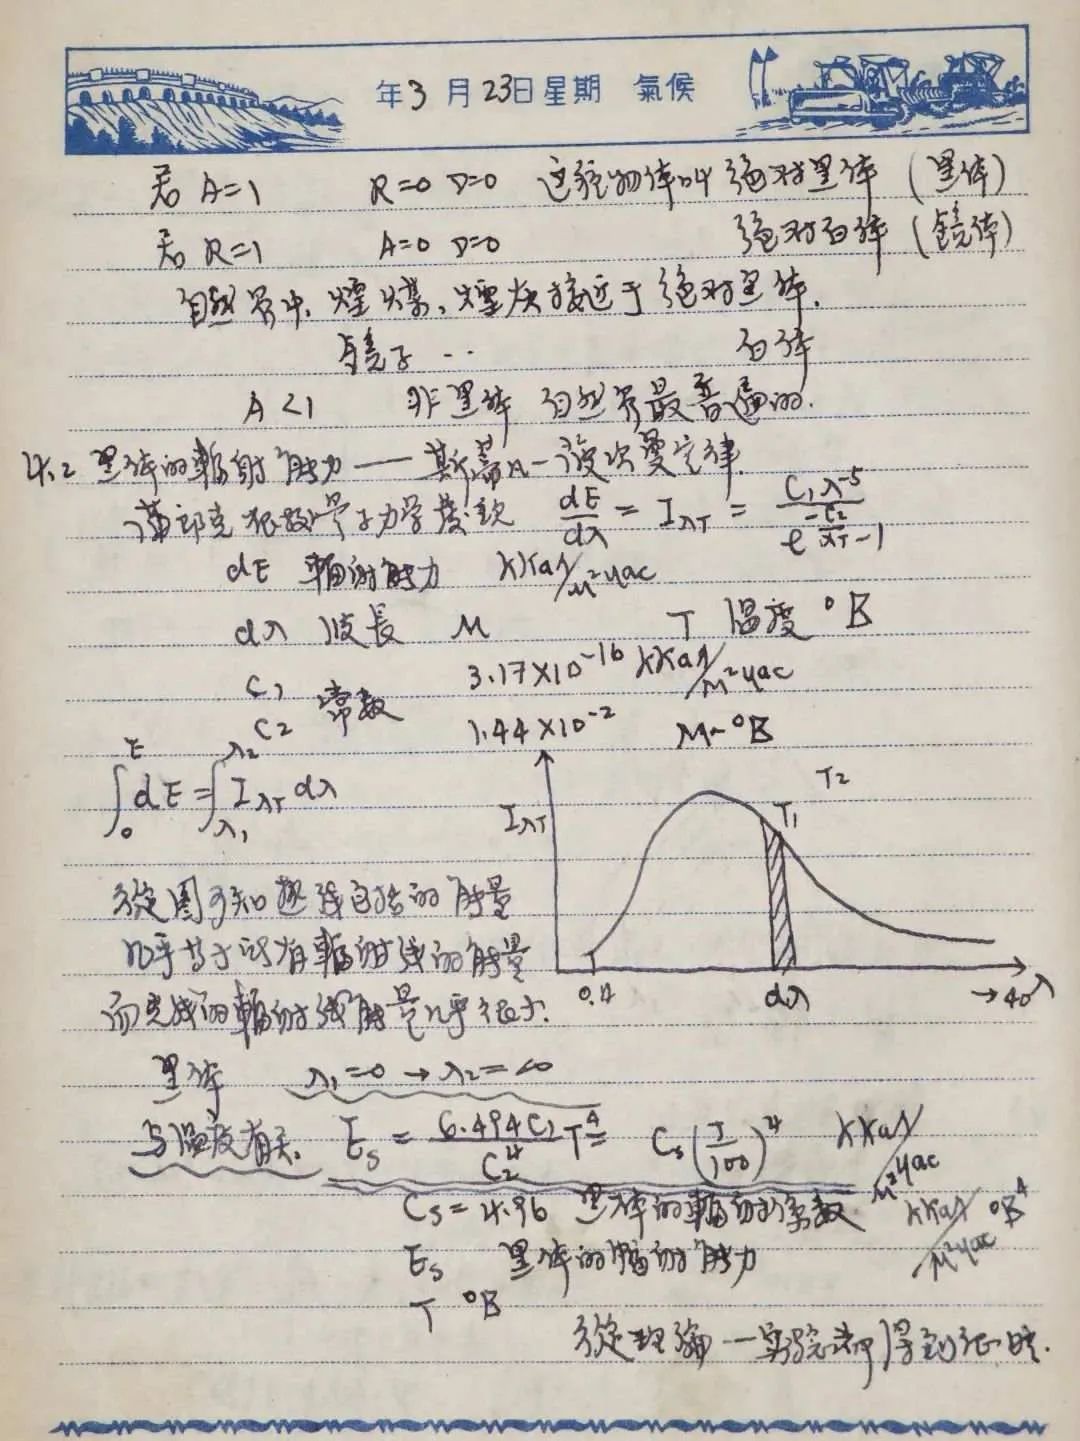 年3月23日星期 氣候
若 A=1 R=0 D=0 这种物体叫 绝对黑体 (黑体)
若 R=1 A=0 D=0 绝对白体 (镜体)
自然界中, 煙煤、煙灰接近于绝对黑体.
镜子 … 白体
A<1 非黑体 自然界最普遍的.
4.2 黑体的輻射能力——斯蒂—波次曼定律
根据量子力学 dE/dλ = I_λT = C₁λ⁻⁵/(e^(-C₂/λT)-1)
dE 輻射能力 ккал/м²час
dλ 波長 м T 温度 °B
C₁ 3.17×10⁻¹⁶ ккал/м²час
C₂ 常数 1.44×10⁻² м-°B
∫₀^E dE = ∫_λ₁^λ₂ I_λT dλ
I_λT T₁ T₂
0.4 dλ →40 λ
從图可知 热线包括的能量
几乎等于所有輻射线的能量
而光线的輻射线能量几乎很小.
黑体 λ₁=0→λ₂=∞
与温度有关. E_s = 6.494C₁/C₂⁴ T⁴ = C_s(T/100)⁴ ккал/м²час
C_s=4.96 黑体的輻射系数 ккал/м²час °B⁴
E_s 黑体的輻射能力
T °B
從理論—实验都得到证明.